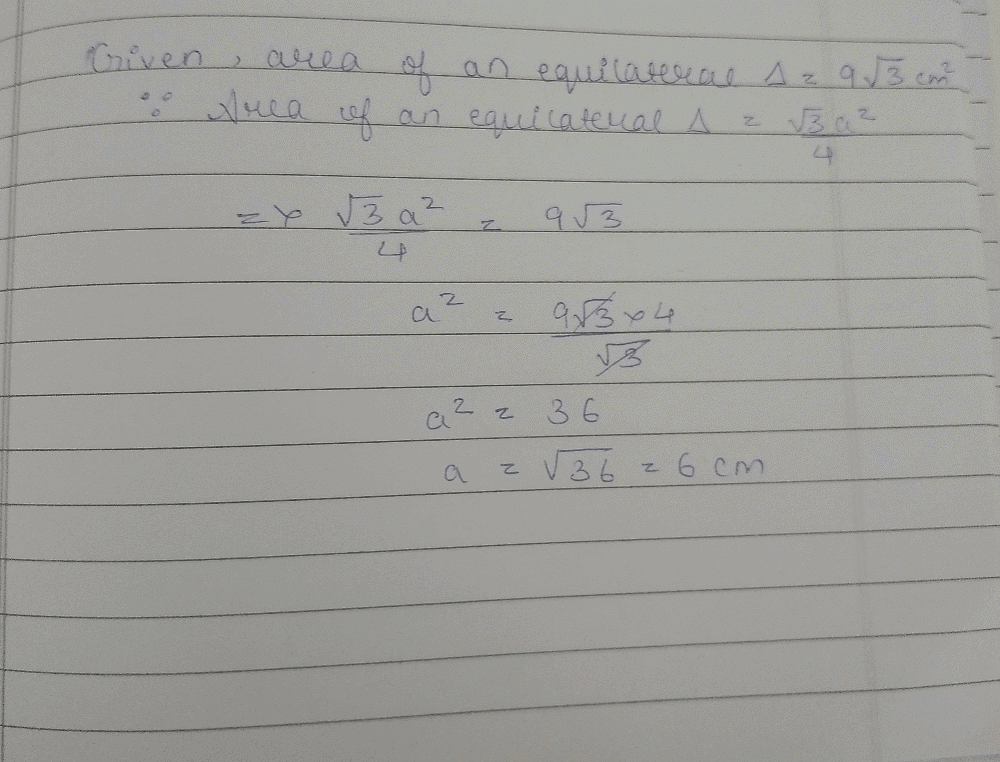 Given, area of an equilateral Δ = 9√3 cm²
∵ Area of an equilateral Δ = √3a²/4
=> √3a²/4 = 9√3
a² = 9√3 × 4/√3
a² = 36
a = √36 = 6 cm